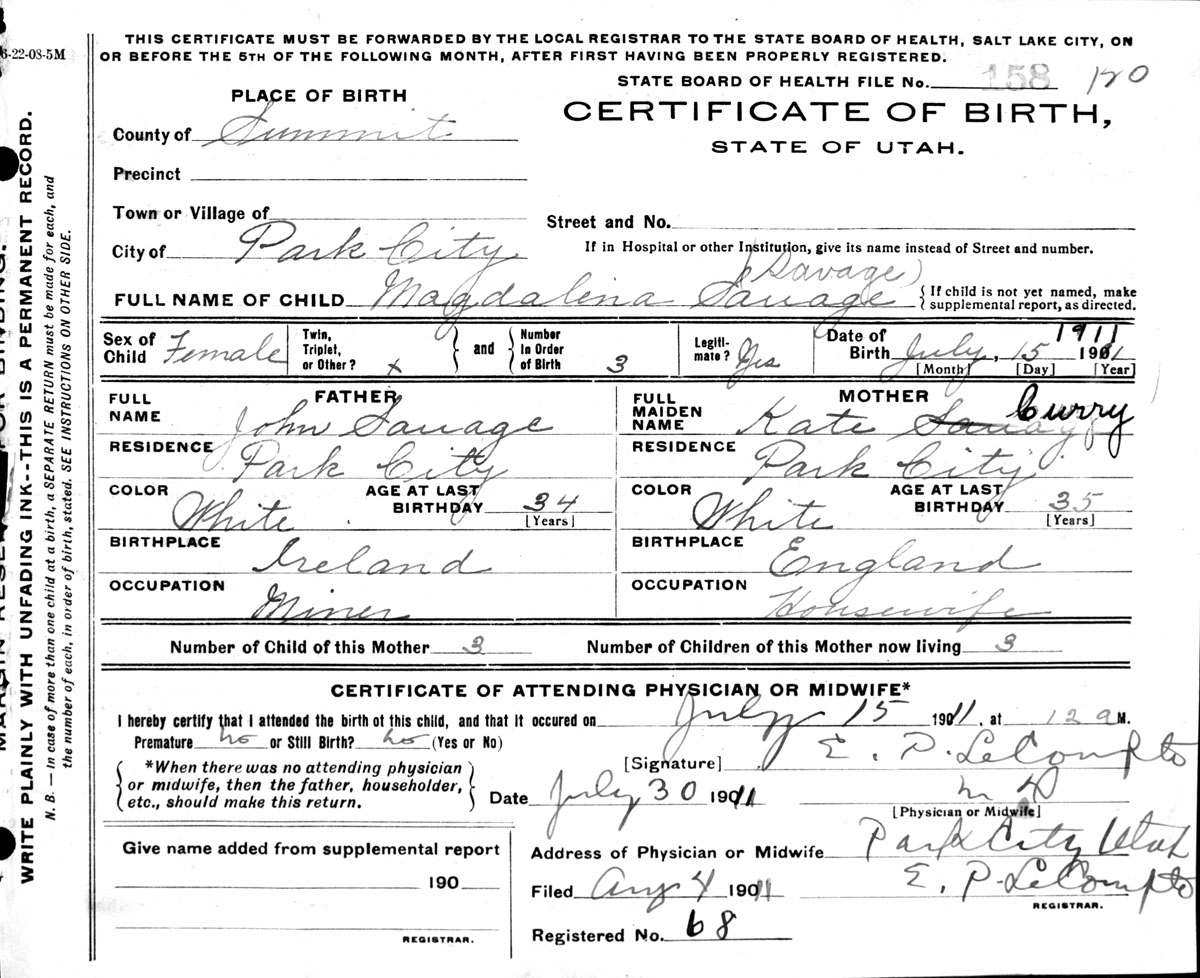 THIS CERTIFICATE MUST BE FORWARDED BY THE LOCAL REGISTRAR TO THE STATE BOARD OF HEALTH, SALT LAKE CITY, ON
OR BEFORE THE 5TH OF THE FOLLOWING MONTH, AFTER FIRST HAVING BEEN PROPERLY REGISTERED.
6-22-08-5M
STATE BOARD OF HEALTH FILE No. 158 120
PLACE OF BIRTH
CERTIFICATE OF BIRTH,
STATE OF UTAH.
County of Summit
Precinct
Town or Village of
Street and No.
City of Park City
If in Hospital or other Institution, give its name instead of Street and number.
(Savage)
FULL NAME OF CHILD Magdalina Savage { If child is not yet named, make supplemental report, as directed.
Sex of Child Female
Twin, Triplet, or Other? x } and { Number In Order of Birth 3
Legitimate? Yes
Date of Birth July, 15 1901 1911
[Month] [Day] [Year]
FATHER
FULL NAME John Savage
RESIDENCE Park City
COLOR White AGE AT LAST BIRTHDAY 34 [Years]
BIRTHPLACE Ireland
OCCUPATION Miner
MOTHER
FULL MAIDEN NAME Kate Savage Curry
RESIDENCE Park City
COLOR White AGE AT LAST BIRTHDAY 35 [Years]
BIRTHPLACE England
OCCUPATION Housewife
Number of Child of this Mother 3 Number of Children of this Mother now living 3
CERTIFICATE OF ATTENDING PHYSICIAN OR MIDWIFE*
I hereby certify that I attended the birth of this child, and that it occured on July 15 1911, at 12 a M.
Premature no or Still Birth? no (Yes or No)
[Signature] E. P. LeCompte
{ *When there was no attending physician
or midwife, then the father, householder,
etc., should make this return. }
Date July 30 1911 M D
[Physician or Midwife]
Give name added from supplemental report
190
REGISTRAR.
Address of Physician or Midwife Park City Utah
Filed Aug 4 1911 E. P. LeCompte
REGISTRAR.
Registered No. 68
MARGIN RESERVED FOR BINDING.
WRITE PLAINLY WITH UNFADING INK--THIS IS A PERMANENT RECORD.
N. B. — In case of more than one child at a birth, a SEPARATE RETURN must be made for each, and
the number of each, in order of birth, stated. SEE INSTRUCTIONS ON OTHER SIDE.